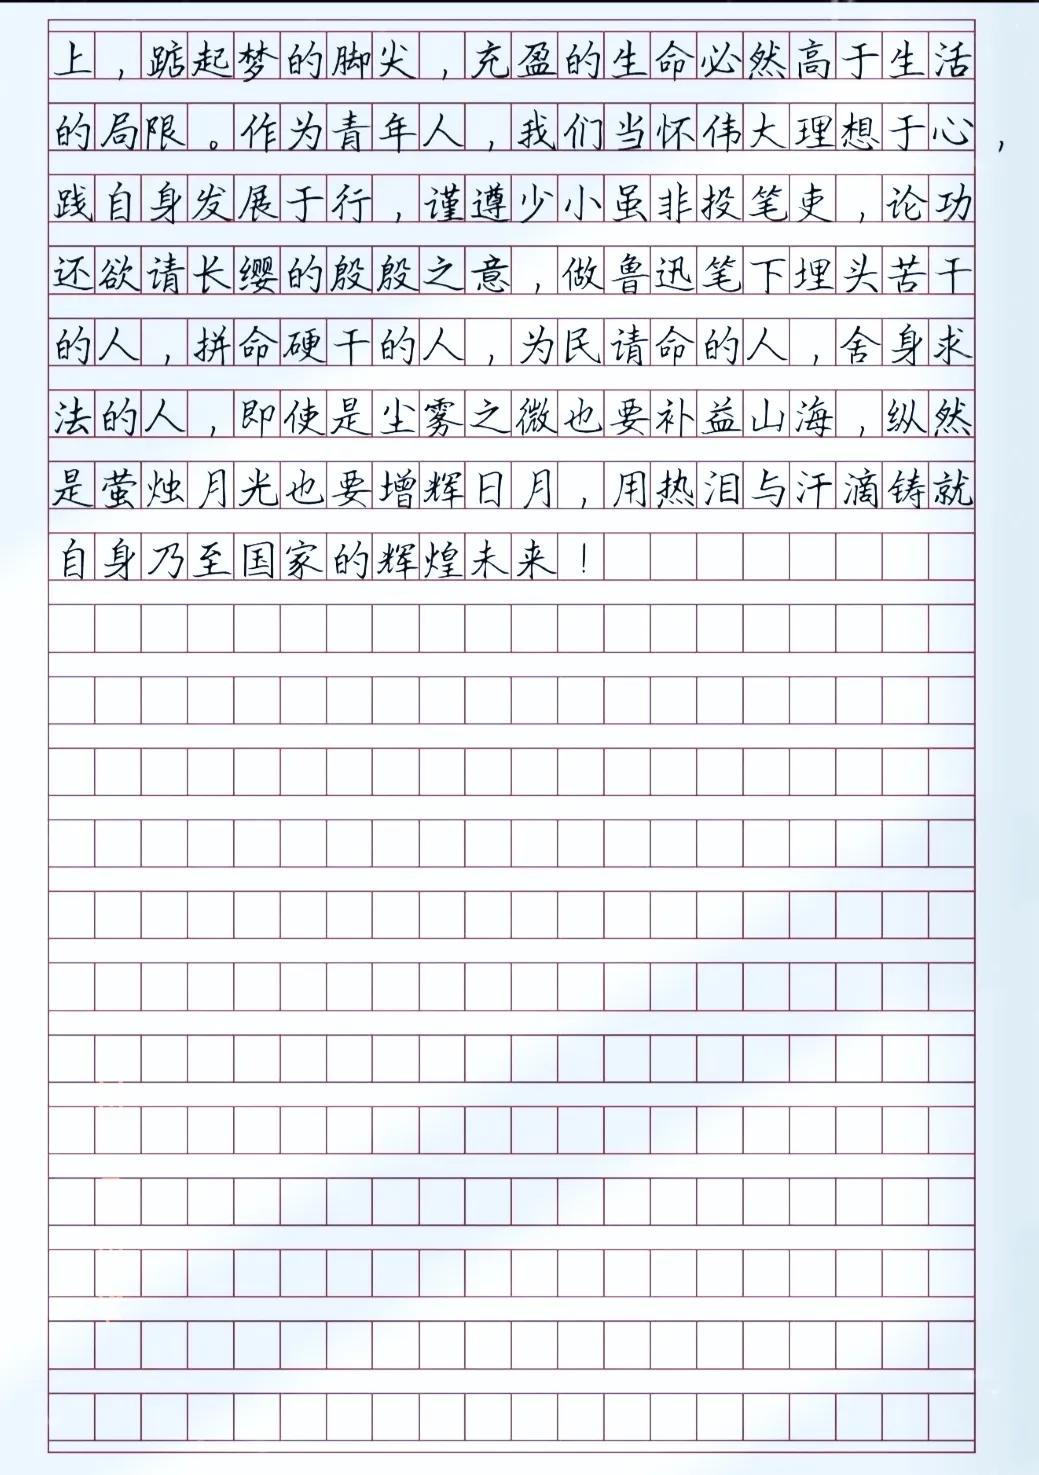 上，踮起梦的脚尖，充盈的生命必然高于生活
的局限。作为青年人，我们当怀伟大理想于心，
践自身发展于行，谨遵少小虽非投笔吏，论功
还欲请长缨的殷殷之意，做鲁迅笔下埋头苦干
的人，拼命硬干的人，为民请命的人，舍身求
法的人，即使是尘雾之微也要补益山海，纵然
是萤烛月光也要增辉日月，用热泪与汗滴铸就
自身乃至国家的辉煌未来！